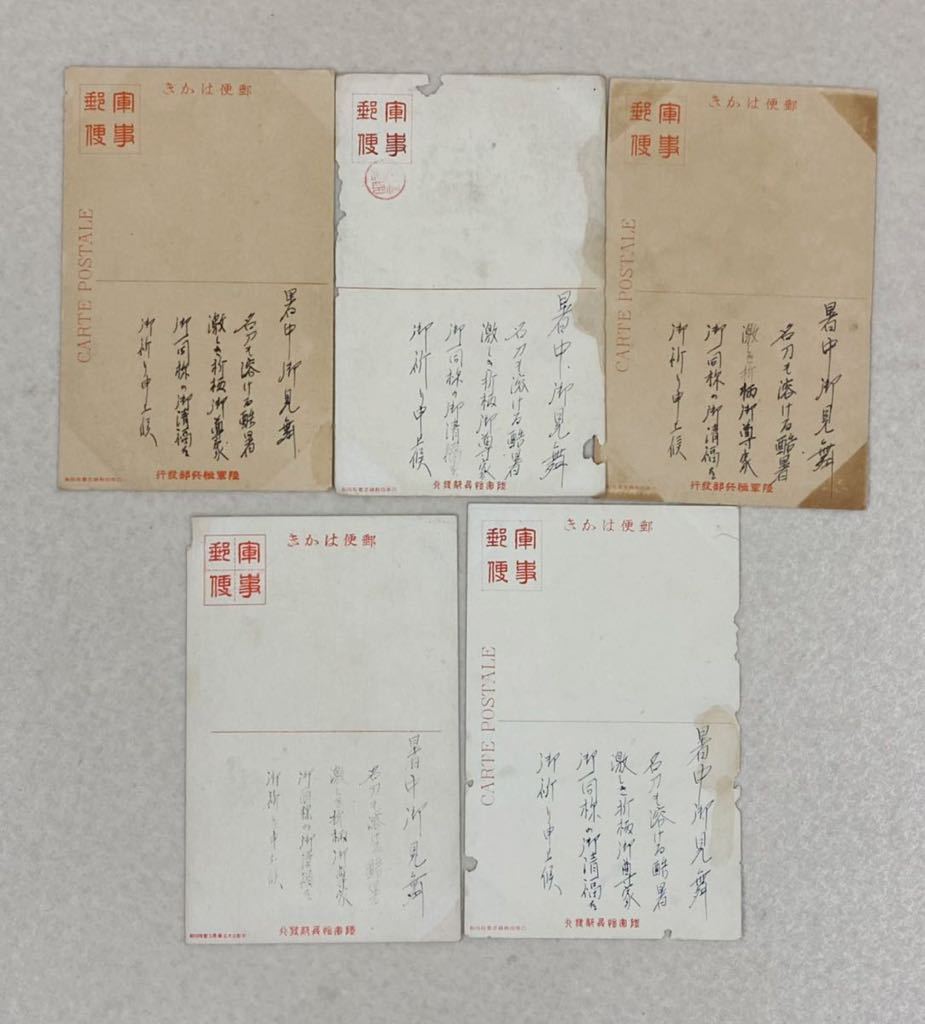 郵便はかき
軍事
郵便
CARTE POSTALE
暑中御見舞
名刀も溶ける酷暑
激しき折柄御尊家
御一同様の御清福を
御祈り申上候
陸軍恤兵部發行
軍事
郵便
暑中御見舞
名刀も溶ける酷暑
激しき折柄御尊家
御一同様の御清福を
御祈り申上候
陸軍恤兵部發行
郵便はかき
軍事
郵便
CARTE POSTALE
暑中御見舞
名刀も溶ける酷暑
激しき折柄御尊家
御一同様の御清福を
御祈り申上候
陸軍恤兵部發行
郵便はかき
軍事
郵便
暑中御見舞
名刀も溶ける酷暑
激しき折柄御尊家
御一同様の御清福を
御祈り申上候
陸軍恤兵部發行
郵便はかき
軍事
郵便
CARTE POSTALE
暑中御見舞
名刀も溶ける酷暑
激しき折柄御尊家
御一同様の御清福を
御祈り申上候
陸軍恤兵部發行